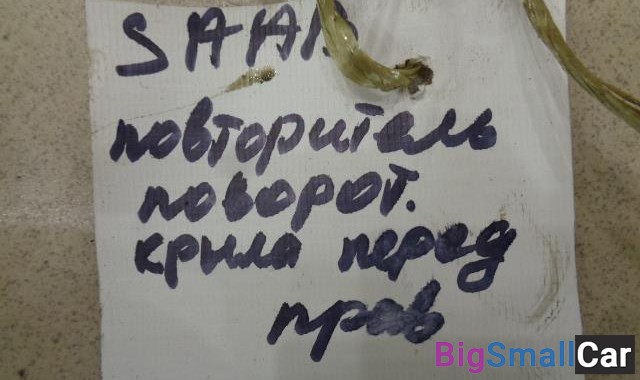 SAAB
повторитель
поворот.
крыла перед
прав
BigSmallCar